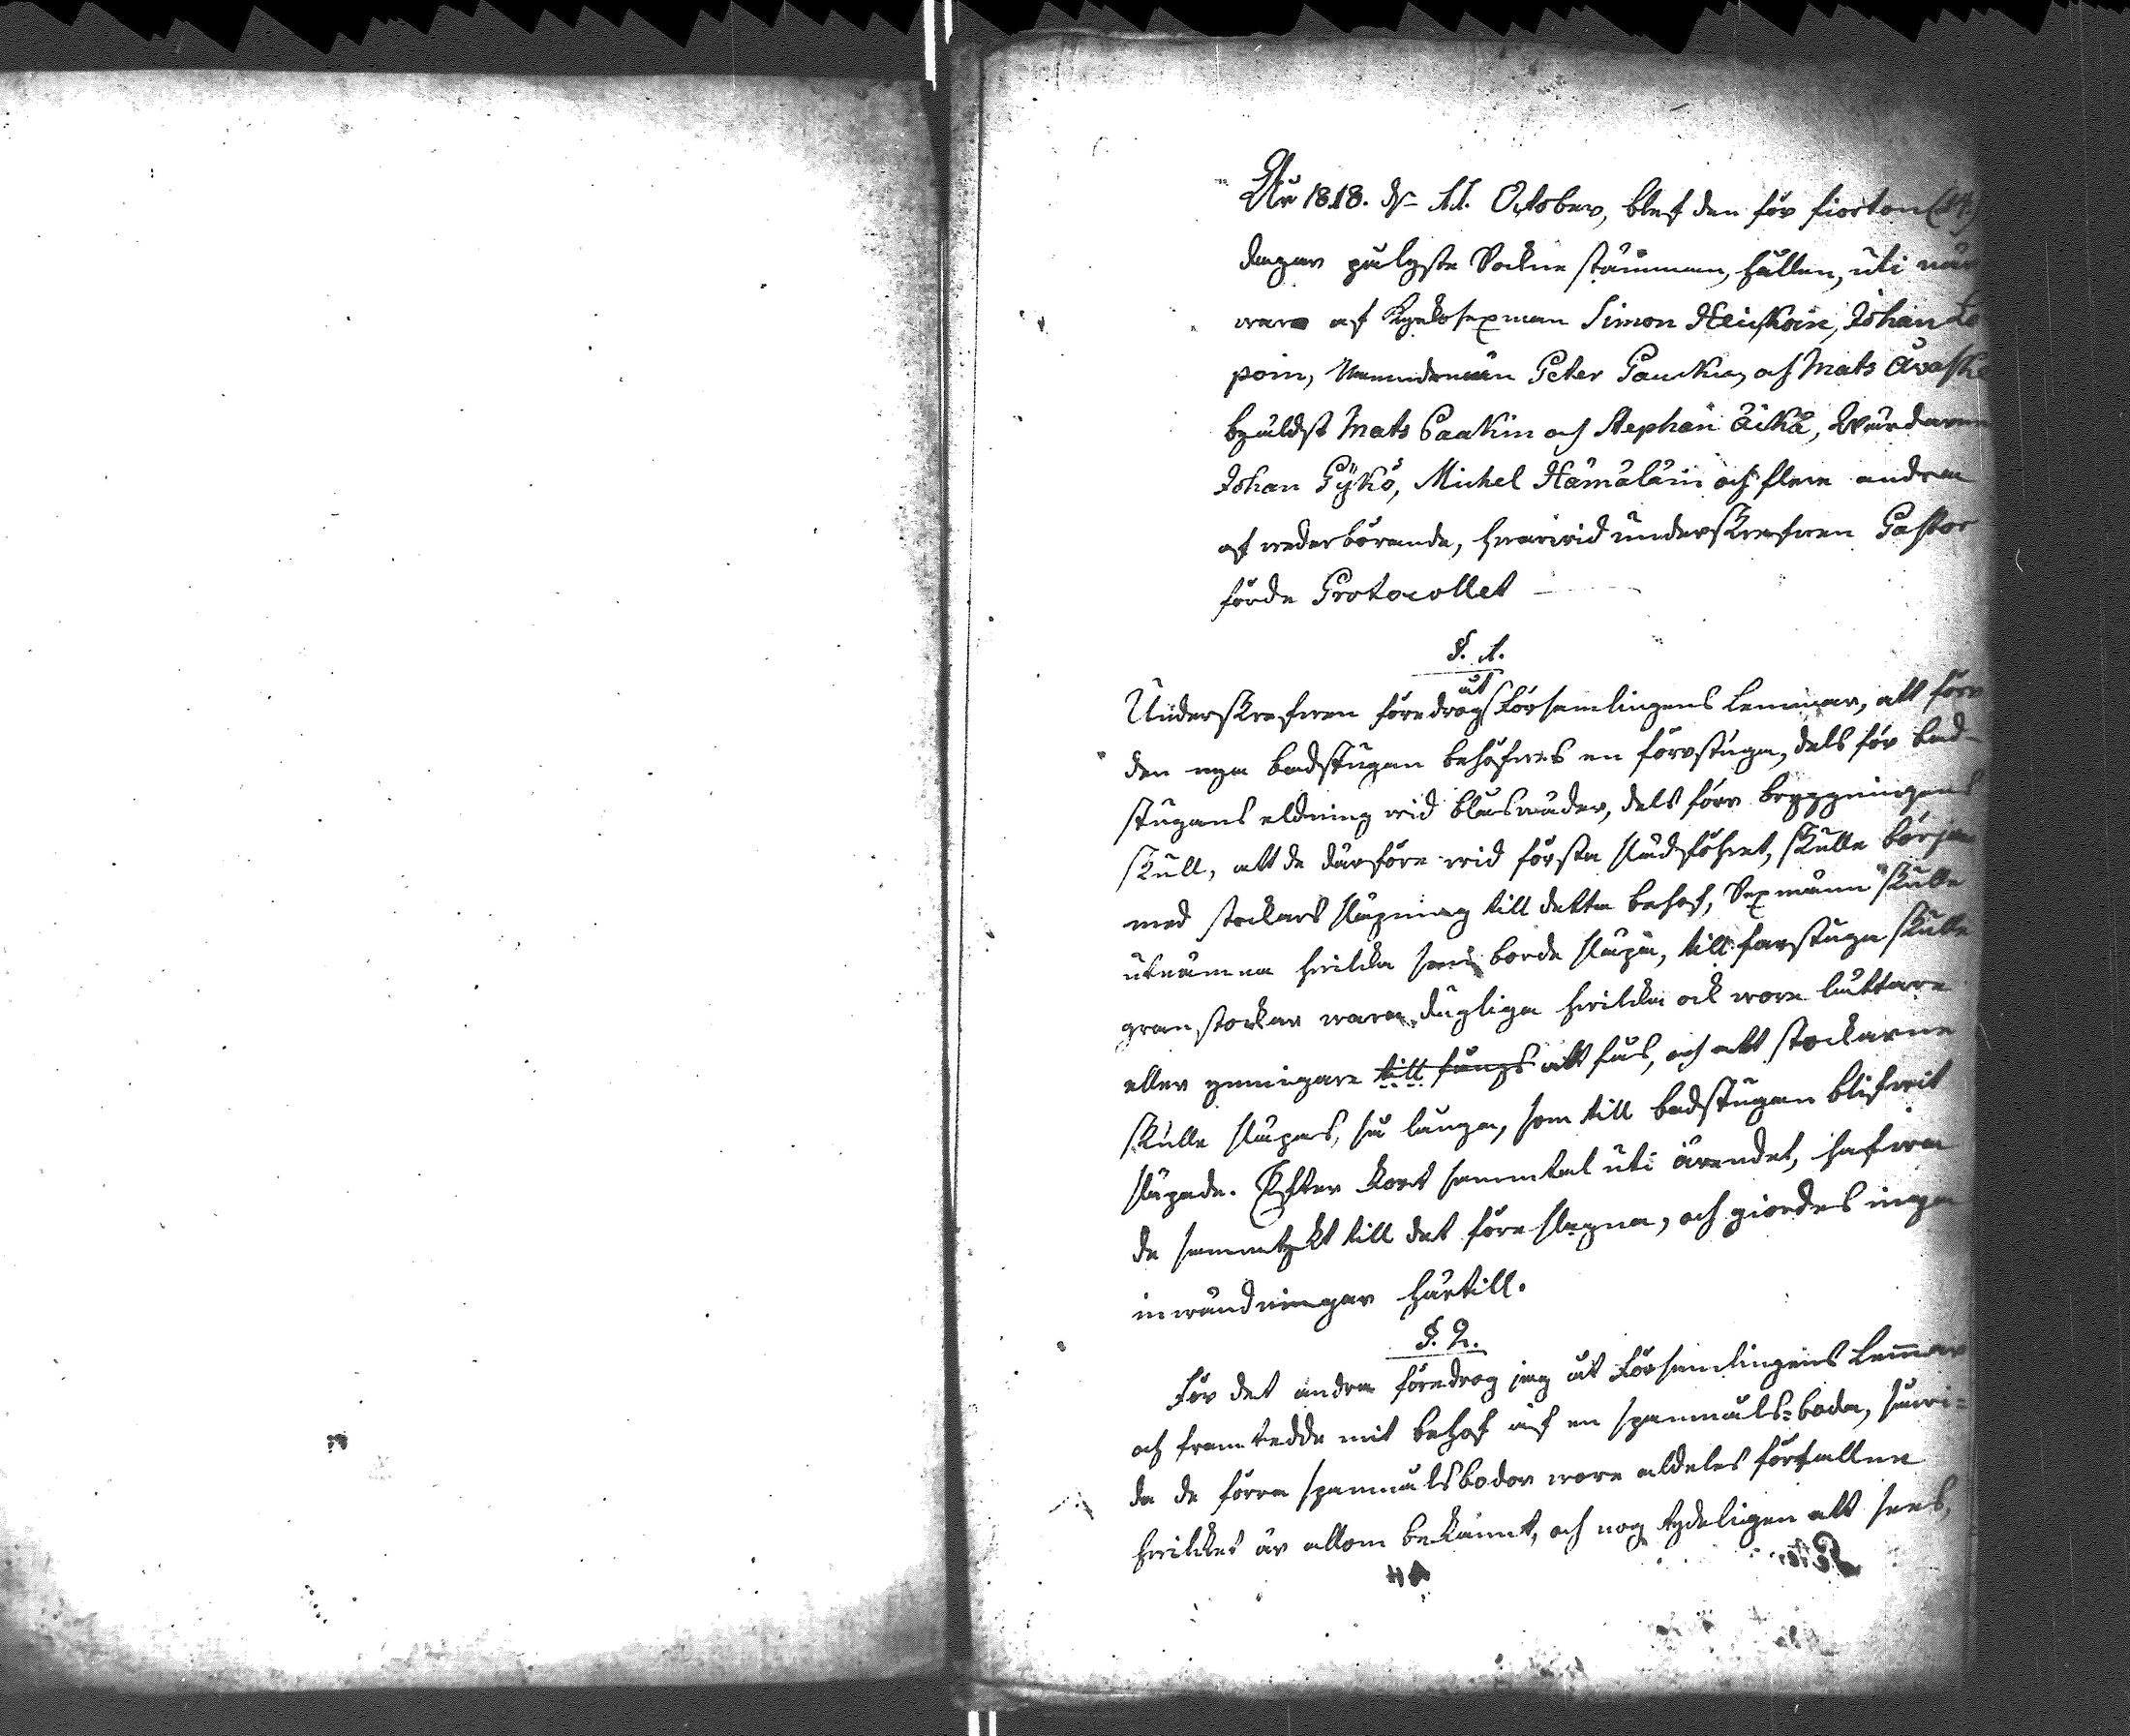 År 1818. d. 11. October, blef den för fiorton (14.)
dagar pålyste Sockne stämman, hållen, uti när
waro af Kyrkosexman Simon Heiskain, Johan
poin, Nämndemän Peter och Mats
Mats Paakin och Stephan Äikä, Wärdarne
Johan Pykö, Michel Hämäläin och flere andra
af wederbörande, hwarwid underskrefwen Pastor
förde Protocollet
§. 1.
Underskrefwen föredrog åt Församlingens lemmar, att förr
den nya badstugan behöfwes en förrstuga, dels för bad-
stugans eldning wid blåswäder, dels förr bryggningens
skull, att de därföre wid första slädföhret, skulle börja
med stockars släpning till detta behof, Sexmänn skulle
utnämna hwilka som borde släpa, till farstuga skulle
granstockar wara dugliga hwilka ock wore lättare
eller genigare till fångs att fås, och att stockarne
skulle släpas, så långa, som till badstugan blifwit
släpade. Efter kort samtal uti ärendet, hafwa
de samtykt till det föreslagna, och giordes inga
inwändningar härtill.
§. 2.
För det andra föredrog jag åt Församlingens Lemmar
och framtedde mit behof af en spanmåls-boda,
da de förra spanmålsbodor wore aldeles förfallne
hwilket är allom bekannt, och nog tydeligen att sees,